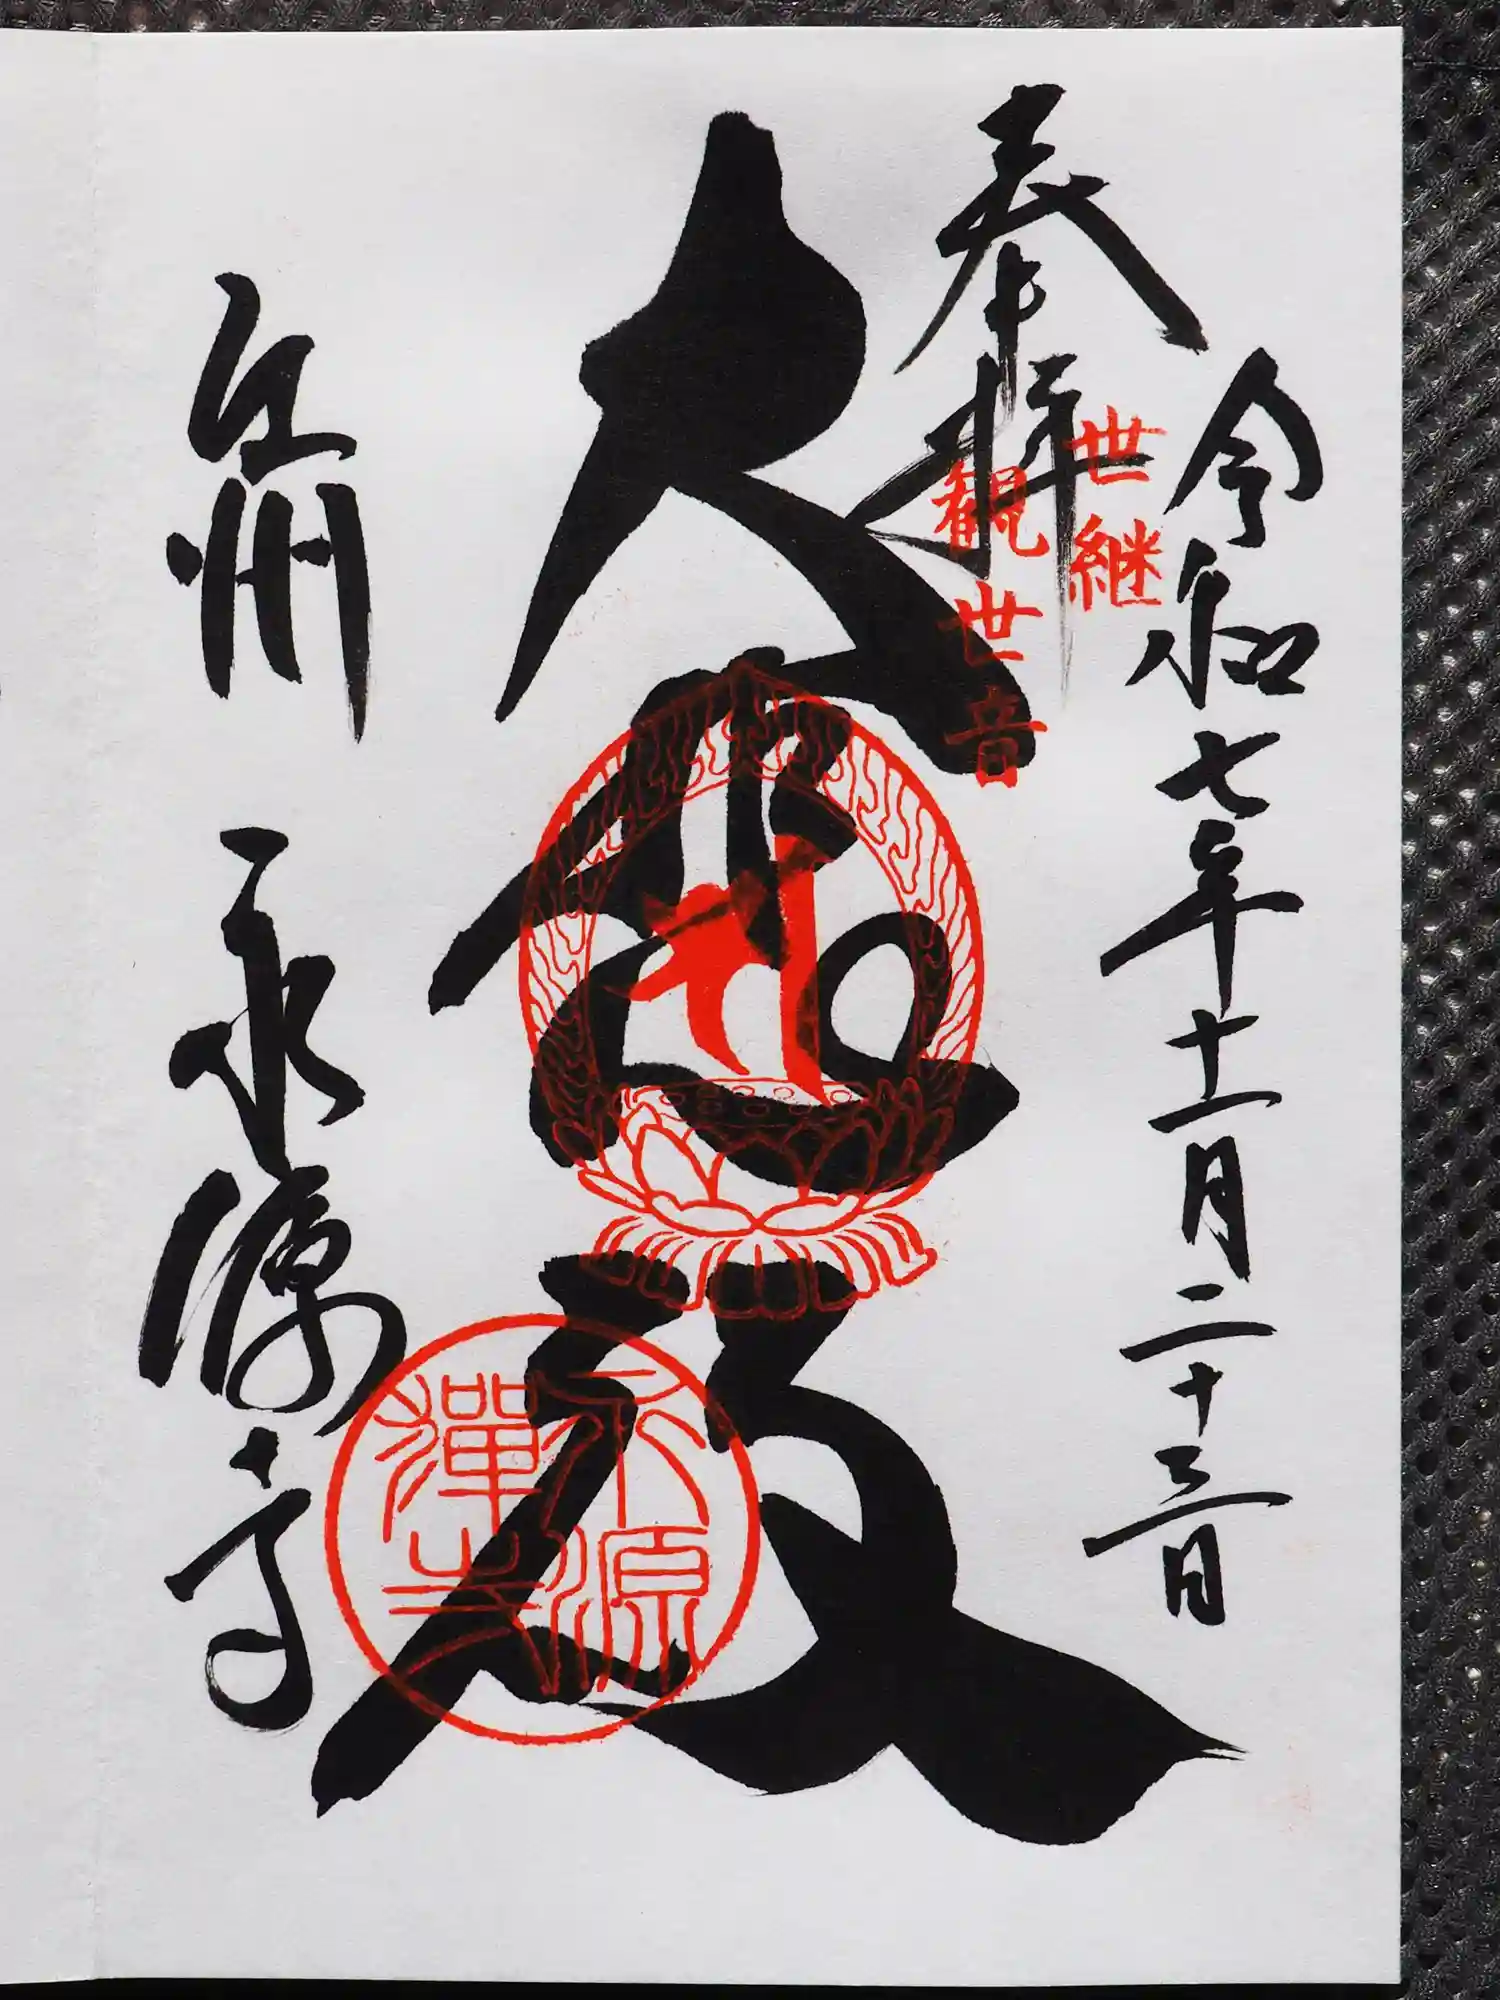 令和七年十一月二十三日
奉拝
世継
観世音
大悲殿
江州 永源寺
永源
禅寺